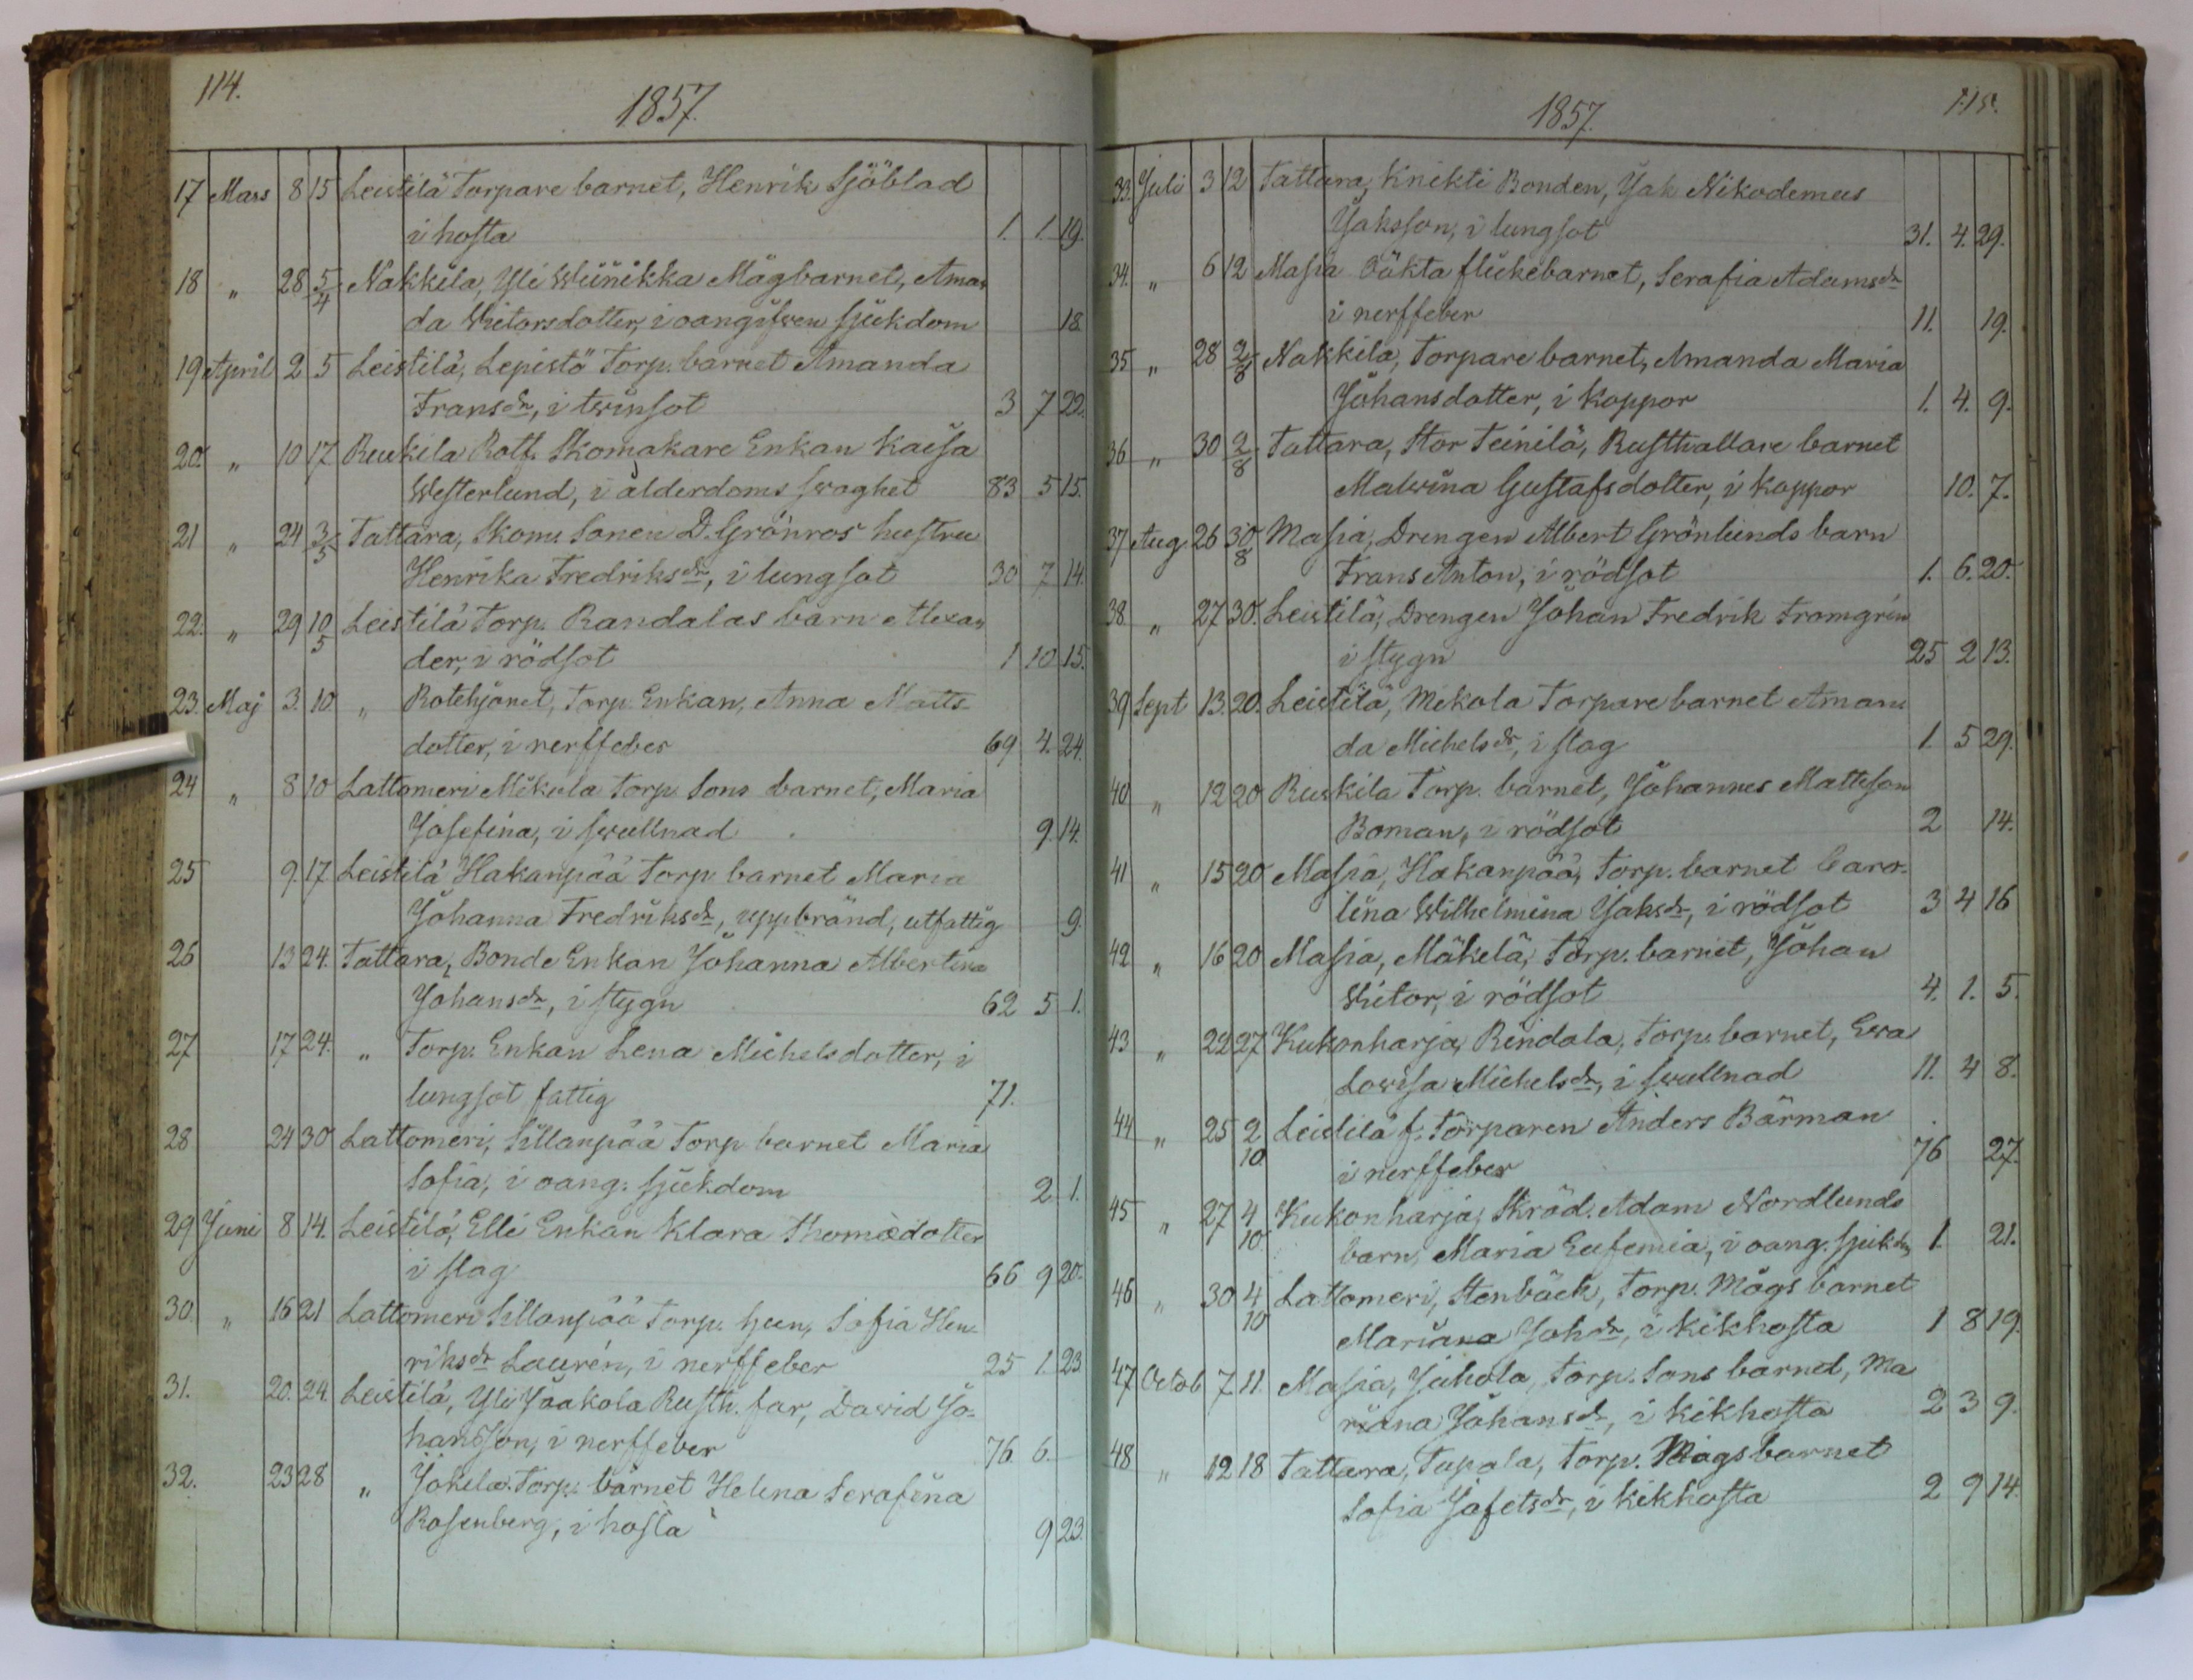 114.
1857.
17 Mars 8 15 Leistilä Torpare barnet, Henrik Sjöblad
i hosta 1. 1. 19.
18 " 28 5/4 Nakkila, Yli Wiinikka Mågbarnet, Aman
da Victorsdotter, i oangifwen sjukdom 18
19 April 2 5 Leistilä, Lepistö Torp. barnet Amanda
Fransdr, i twinsot 3 7 22.
20. " 10 17 Ruskila Rotf. Skomakare Enkan Kaisa
Westerlund, i ålderdoms swaghet 83 5 15.
21 " 24 3/5 Tattara, Skom. Sonen D. Grönros hustru
Henrika Fredriksdr, i lungsot 30 7 14.
22. " 29 10/5 Leistilä Torp. Randalas barn Alexan
der, i rödsot 1 10 15.
23. Maj 3. 10 " Rotehjonet, Torp. Enkan, Anna Matts-
dotter, i nerffeber 69 4. 24.
24 " 8 10 Lattomeri Mikola Torp. Sons barnet, Maria
Josefina, i swullnad 9. 14.
25 9. 17 Leistilä Hakanpää Torp barnet Maria
Johanna Fredriksdr, uppbränd, utfattig 9.
26 13 24. Tattara, Bonde Enkan Johanna Albertina
Johansdr, i stygn 62 5 1.
27 17 24. " Torp. Enkan Lena Michelsdotter, i
lungsot fattig 71.
28 24 30 Lattomeri, Sillanpää Torp barnet Maria
Sofia, i oang. sjukdom 2 1.
29 Juni 8 14. Leistilä, Elli Enkan Klara Thomædotter
i slag 66 9 20.
30. " 16 21 Lattomeri Sillanpää Torp. hun, Sofia Hen-
riksdr Laurén, i nerffeber 25 1. 23
31. 20. 24. Leistilä, Yli Jaakola Rusth. far, David Jo-
hansson, i nerffeber 76 6.
32. 23 28 " Jokela Torp. barnet Helena Serafina
Rosenberg, i hosta 9 23.
1857.
115.
33. Juli 3 12 Tattara, Knikti Bonden, Jak Nikodemus
Jaksson, i lungsot 31. 4. 29.
34. " 6 12 Masia Oükta flickebarnet, Serafia Adamsdr
i nerffeber 11. 19.
35 " 28 2/8 Nakkila, Torpare barnet, Amanda Maria
Johansdotter, i koppor 1. 4. 9.
36 " 30 2/8 Tattara, Stor Teinilä, Rusthållare barnet
Malwina Gustafsdotter, i koppor 10. 7.
37 Aug 26 30/8 Masia, Drengen Albert Grönlunds barn
Frans Anton, i rödsot 1. 6. 20.
38. " 27 30. Leistilä, Drengen Johan Fredrik Fromgrén
i stygn 25 2 13.
39 Sept 13. 20. Leistilä, Mikola Torpare barnet Aman
da Michelsdr, i slag 1. 5 29.
40 " 12 20 Ruskila Torp. barnet, Johannes Mattsson
Boman, i rödsot 2 14.
41 " 15 20 Masia, Hakanpää, Torp. barnet Caro-
lina Wilhelmina Jaksdr, i rödsot 3 4 16
42 " 16 20 Masia, Mäkelä, Torp. barnet, Johan
Victor, i rödsot 4. 1. 5.
43 " 22 27 Kukonharja, Rindala, Torp. barnet, Ewa
Lowisa Michelsdr, i swullnad 11. 4 8.
44 " 25 2/10 Leistilä f. Torparen Anders Bärman
i nerffeber 76 27.
45 " 27 4/10 Kukonharja, Skräd. Adam Nordlunds
barn, Maria Eufemia, i oang. sjukdm, 1. 21.
46 " 30 4/10 Lattomeri, Stenbäck, Torp. Mågs barnet
Mariana Johdr, i kikhosta 1 8 19.
47 Octob 7 11. Masia, Juhola, Torp. Sons barnet, Ma
riana Johansdr, i kikhosta 2 3 9.
48 " 12 18 Tattara, Tupala, Torp. Mågsbarnet
Sofia Jafetsdr, i kikhosta 2 9 14.